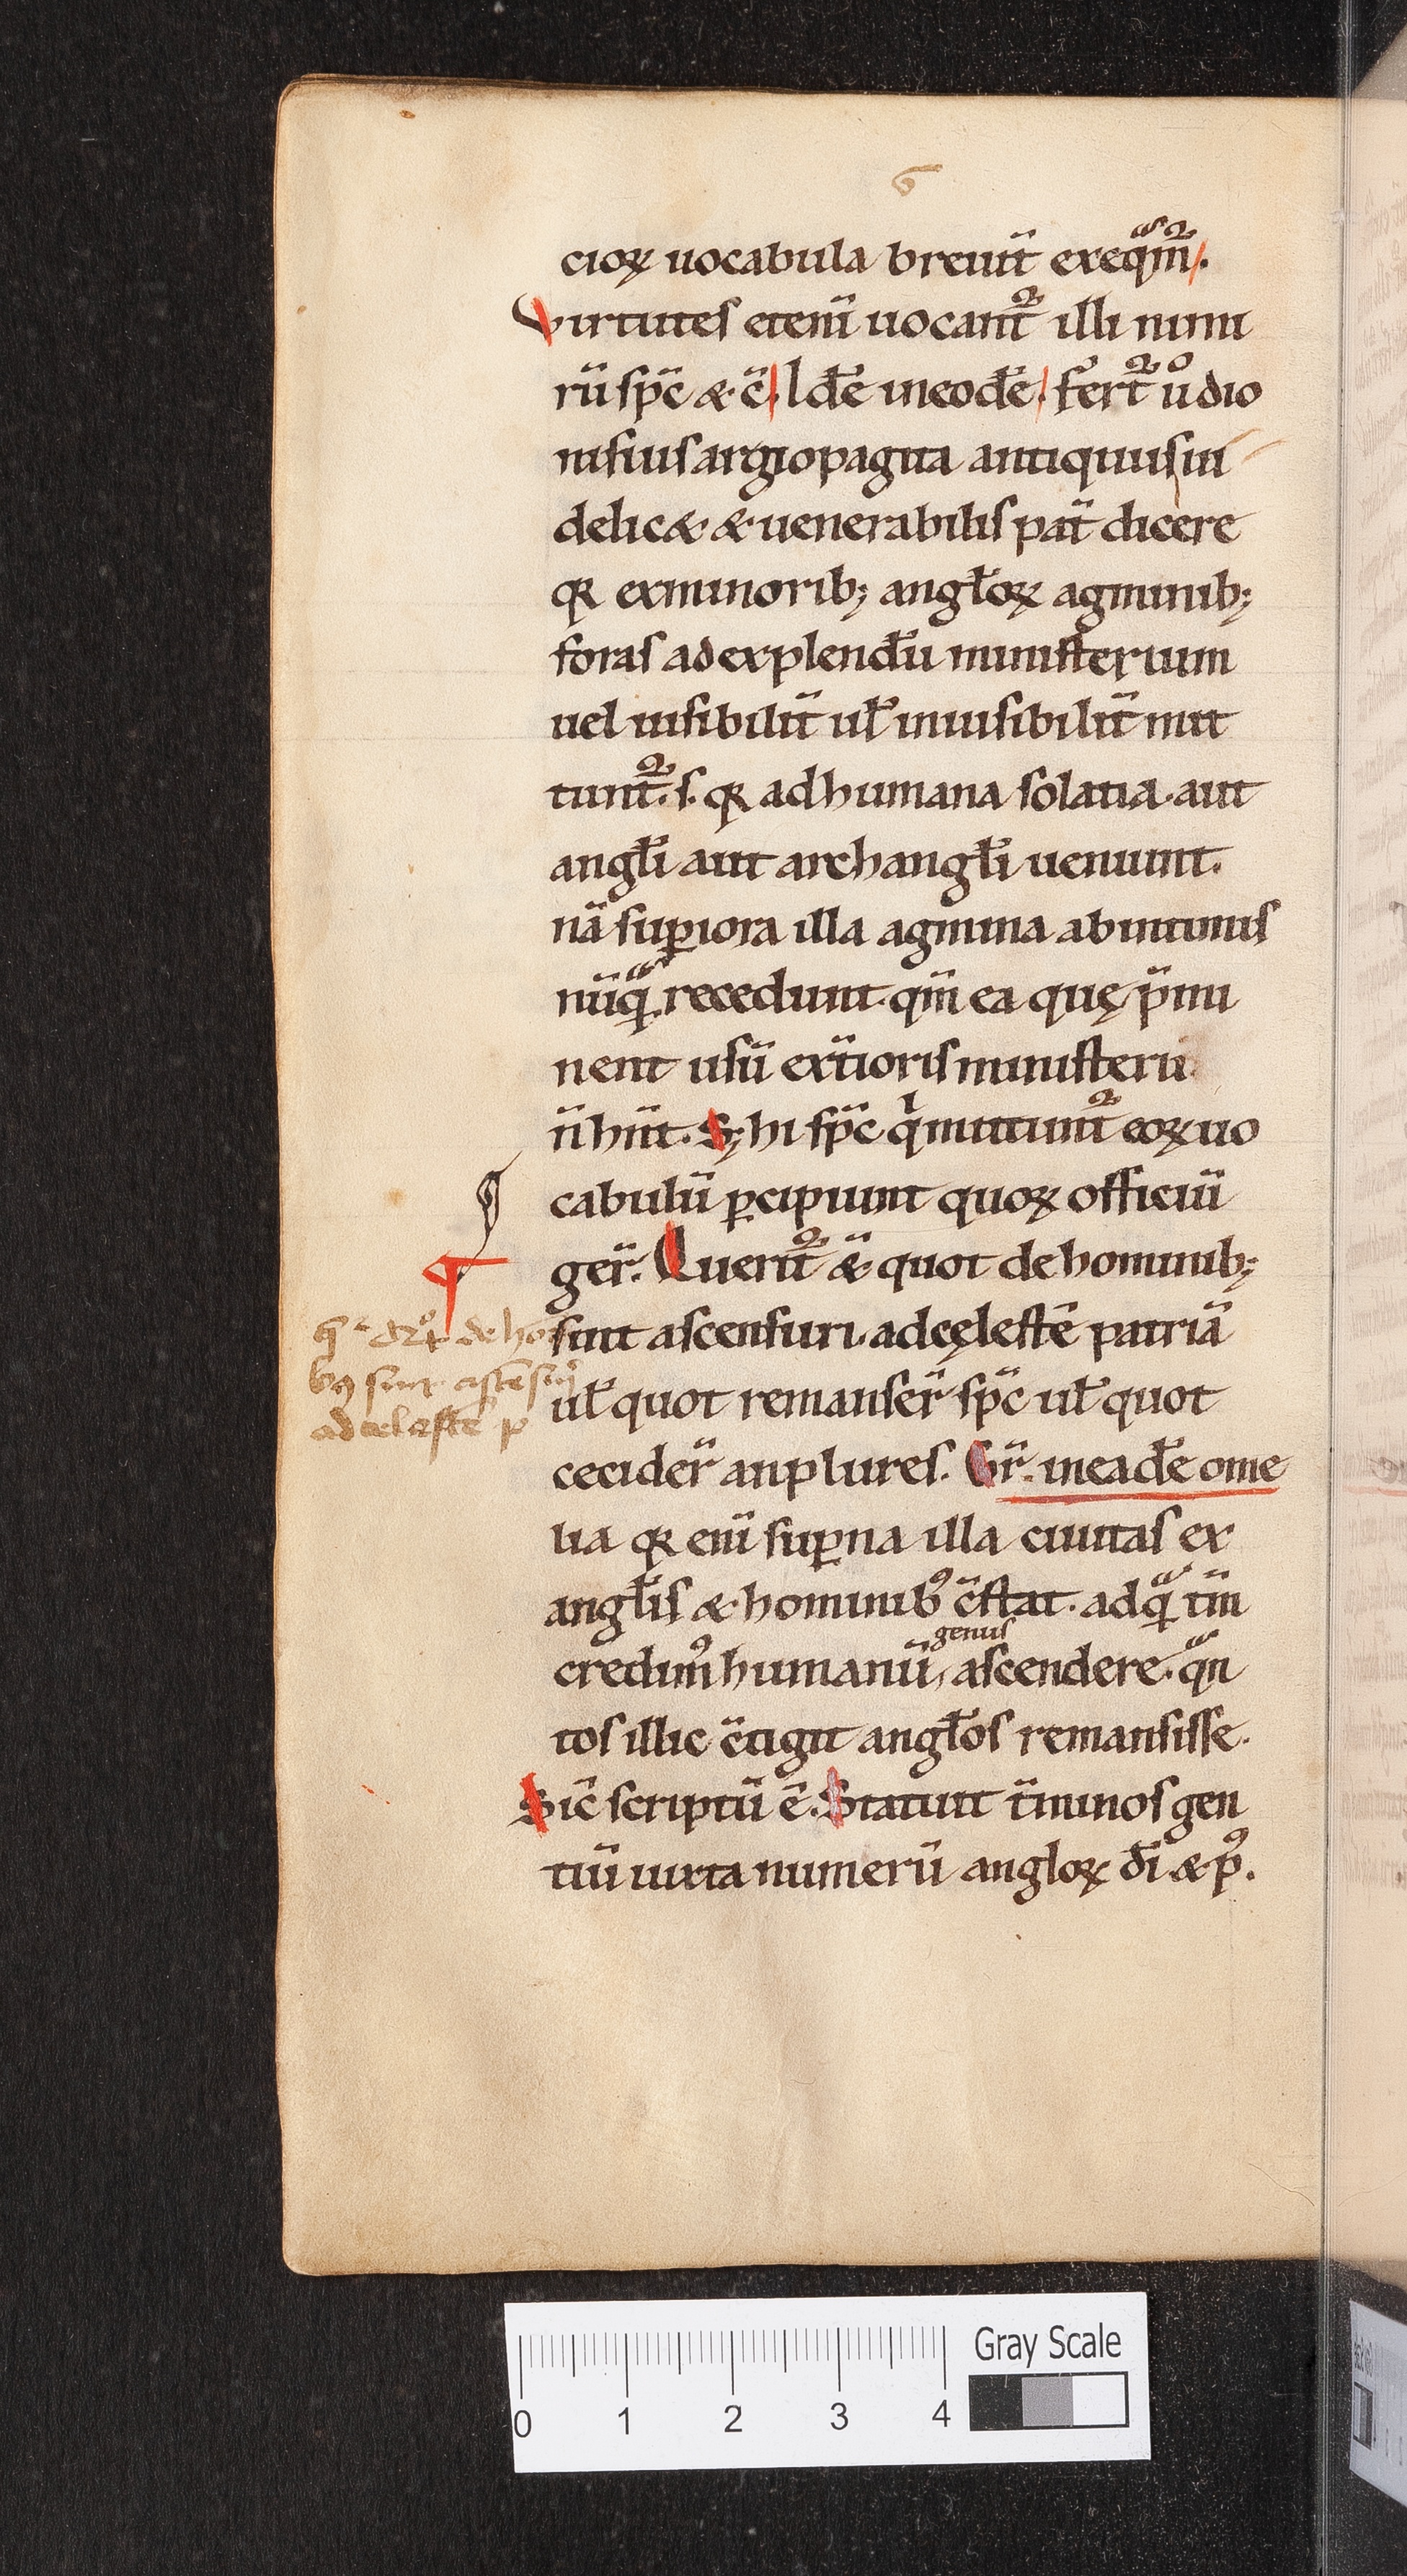 6
cioꝝ uocabula breuiт̄ exeq̄m̄.
Virtutes eteni̅ uocant̄ illi nimi
rū sp̄c & c̄. Idē in eodē. fert̄ u̅ dio
nisius argiopagita antiquus ui
delic& & uenerabilis pat̄ dicere
qꝛ ex minorib; angl̄oꝝ agminib;
foras ad explendū ministerium
uel uisibilit̄ ul̄ inuisibilit̄ mit
tunt̄. s. qꝛ ad humana solatia. aut
angl̄i aut archangl̄i ueniunt.
nā suꝑiora illa agmina ab intimis
nūq̄ recedunt. qm̄ ea quę p̄mi
nent usū ext̄ioris ministerii
n̄ hn̄t. S; hi sp̄c qⁱ mittunt̄ eoꝝ uo
cabulū ꝑcipiunt quoꝝ officiū
ger̄. Querit̄ &̄ quot de hominib;
sint ascensuri. ad cęlestē patriā
ul̄ quot remanser̄ sp̄c ul̄ quot
cecider̄ an plures. Gr̄. in eadē ome
lia qꝛ eni̅ suꝑna illa ciuitas ex
angl̄is & hominibꝰ c̄stat. ad q̄ tm̄
credimꝰ humanū genus ascendere. qᵃn
tos illic c̄tigit angl̄os remansisse.
Sic̄ scriptū ē. Statuit t̄minos gen
tiū iuxta numerū angloꝝ dī. & pꝰ.
de ho
bꝫ sint ascēsuri
ad celestē p
Gray Scale
0 1 2 3 4